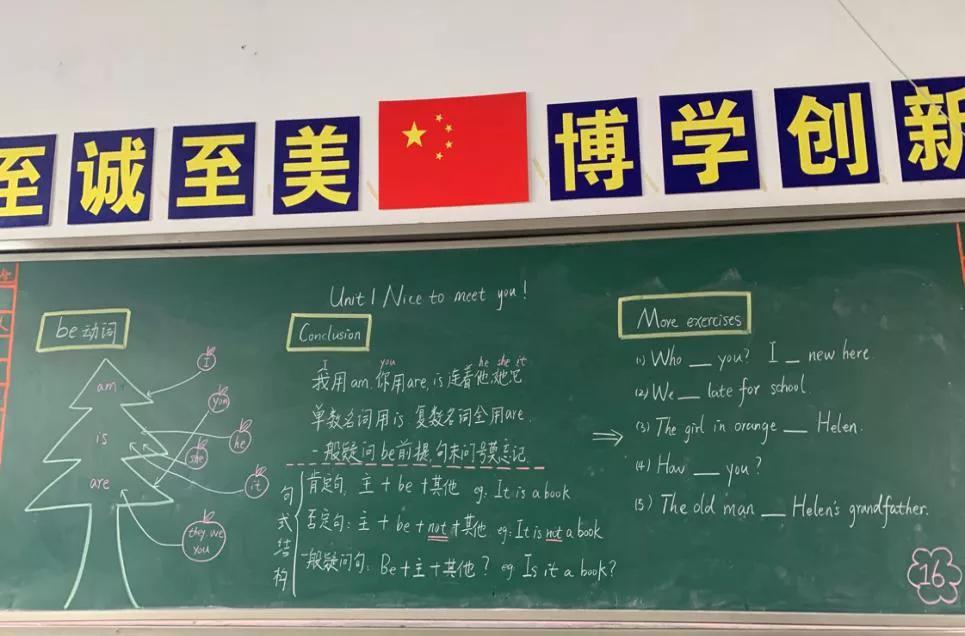 至诚至美 博学创新
Unit 1 Nice to meet you!
be动词
am
is
are
I
you
he
she
it
they we
you
Conclusion
I you he she it
我用am.你用are,is连着他她它
单数名词用is.复数名词全用are.
一般疑问be前提,句末问号莫忘记
句式结构
肯定句:主+be+其他 eg:It is a book
否定句:主+be+not+其他 eg:It is not a book
一般疑问句:Be+主+其他? eg Is it a book?
More exercises
(1) Who __ you? I __ new here.
(2) We __ late for school.
(3) The girl in orange __ Helen.
(4) How __ you?
(5) The old man __ Helen's grandfather.
16